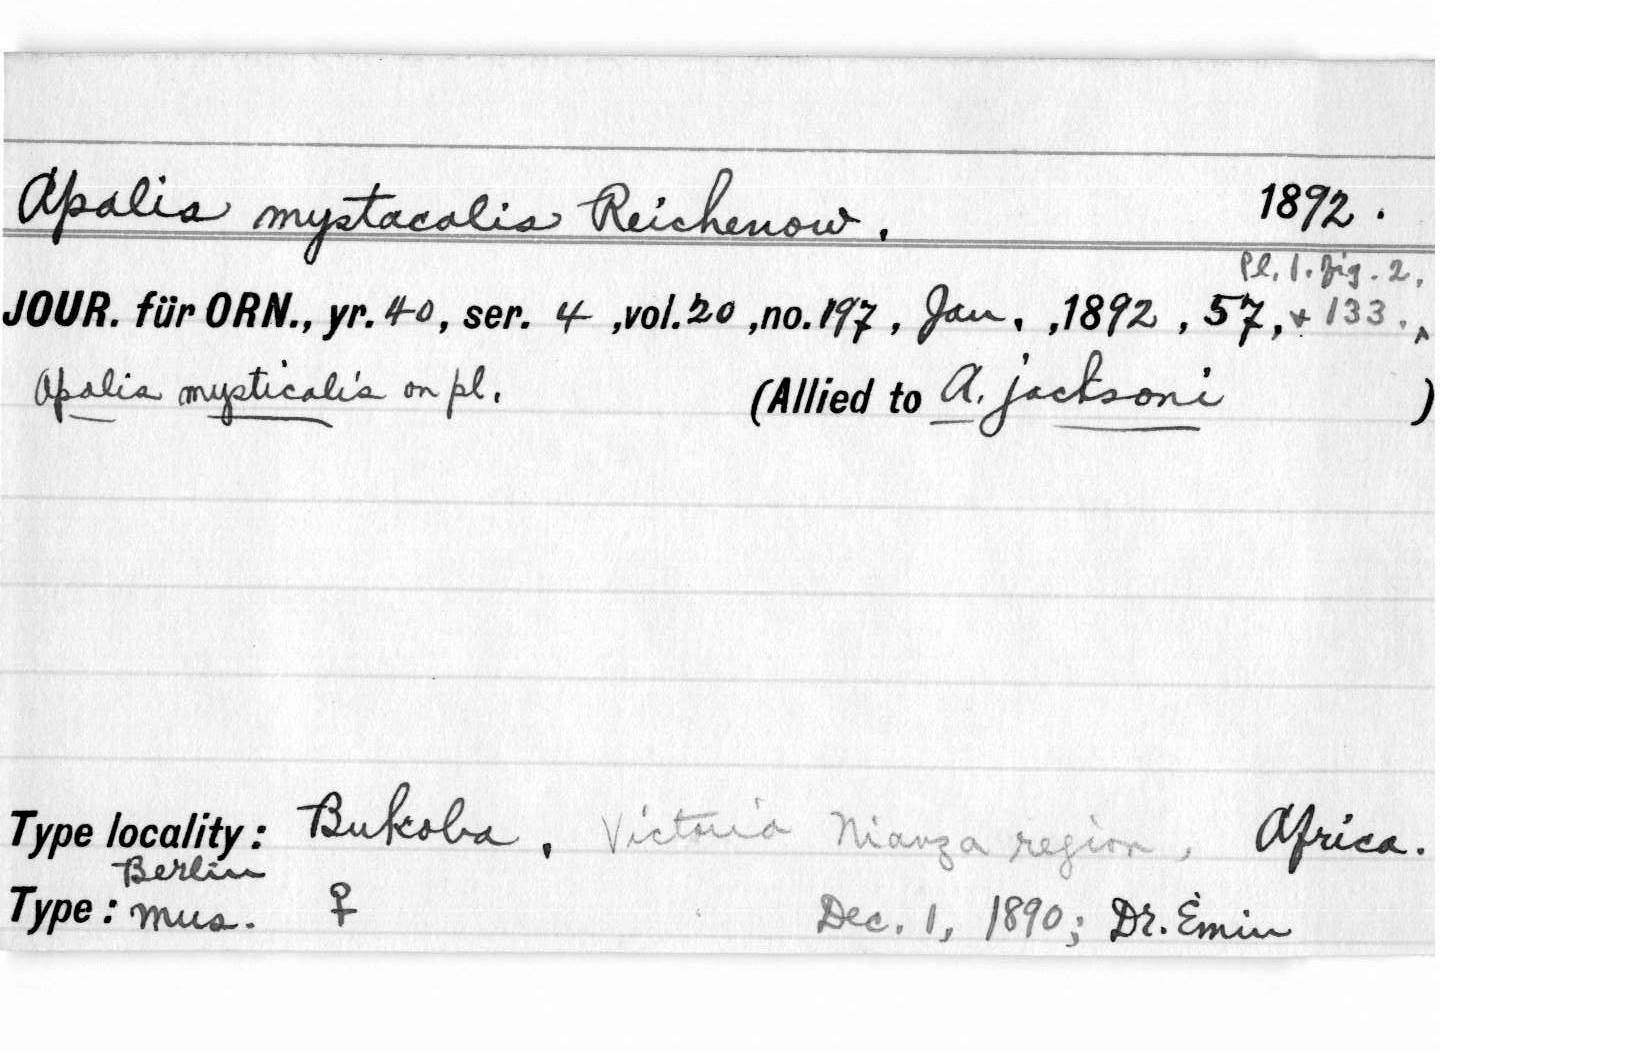 Apalis mystacalis Reichenow. 1892.
Pl. 1. fig. 2.
JOUR. für ORN., yr. 40, ser. 4, vol. 20, no. 197, Jan., 1892, 57, + 133. ^
Apalis mysticalis on pl. (Allied to A. jacksoni )
Type locality: Bukoba, Victoria Nianza region, Africa.
Berlin
Type: mus. ♀ Dec. 1, 1890; Dr. Emin